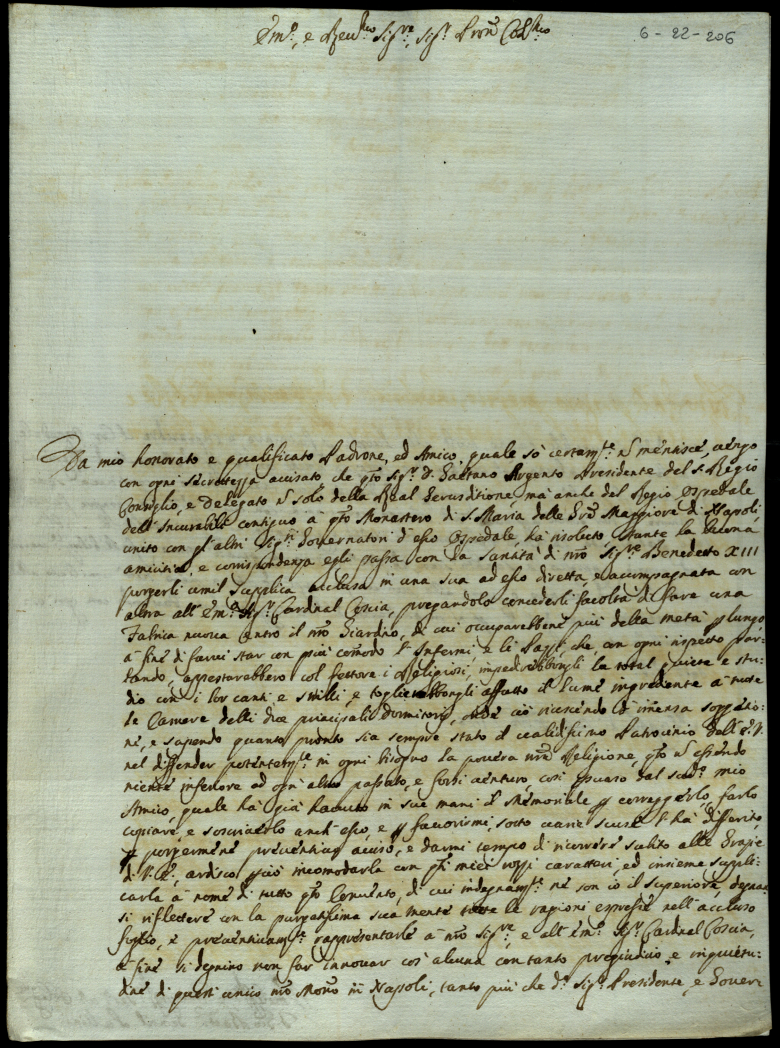 Em.o, e Rev.mo Sig.re, Sig.r Pron Col.mo
6-22-206
Da mio honorato e qualificato Padrone, ed Amico, quale sò certam.te ñ mentisce, vengo
con ogni secretezza avisato, che q̃to Sig.r D. Gaetano Argento Presidente del S. Regio
Consiglio, e Delegato ñ solo della Real Giurisditione, ma anche del Regio Ospedale
dell'Incurabili contiguo à q̃to Monastero di S. Maria delle Grãe Maggiore di Napoli
unito con gl'altri Sig.ri Governatori d'esso Ospedale, ha risoluto stante la buona
amicitia, e corrispondenza egli passa con la Santità di nr̃o Sig.re Benedetto XIII
porgerli umil supplica acclusa in una sua ad esso diretta, e accompagnata con
altra all'Em.o Sig.r Cardinal Coscia, pregandolo concederli facoltà di fare una
Fabrica nuova dentro il nr̃o Giardino, di cui occuparebbeni più della metà p lungo
à fine di farvi star con più comodo l'Infermi e li Pazzi, che, con ogni rispetto par-
lando, appestarebbero col fettore i Religiosi, impedirebbongli la total quiete e stu-
dio con i lor canti e strilli, e toglierebbongli affatto il lume ingrediente à tutte
le Camere delli due principali dormitorij, onde ciò riuscendo d'immensa soggetio-
ne, e sapendo quanto pronto sia sempre stato il validissimo Patrocinio dell'E.V.
nel diffender potentem.te in ogni bisogno la povera nr̃a Religione, q̃to ñ essendo
niente inferiore ad ogni altro passato, e forsi venturo, così spuaso dal sud.o mio
Amico, quale ha già havuto in sue mani il Memoriale p correggerlo, farlo
copiare, e soscriverlo anch'esso, e p favorirmi, sotto varie scuse l'ha differito,
p porgermene preventivo aviso, e darmi tempo di ricorrere subito alle Grazie
di V.E., ardisco p ciò incomodarla con q̃ti miei rozzi caratteri, ed insieme suppli-
carla à nome di tutto q̃to Convento, di cui indegnam.te ne son io il superiore, degnar
si riflettere con la purgatissima sua mente tutte le ragioni espresse nell'accluso
foglio, e preventivam.te rappresentarle à nr̃o Sig.re, e all'Em.o Sig.r Cardinal Coscia,
à fine si degnino non far innovar cos'alcuna con tanto pregiudizio, e inquietu-
dine di questi unico nr̃o Mon.ro in Napoli, tanto più che d.o Sig.r Presidente, e Gover